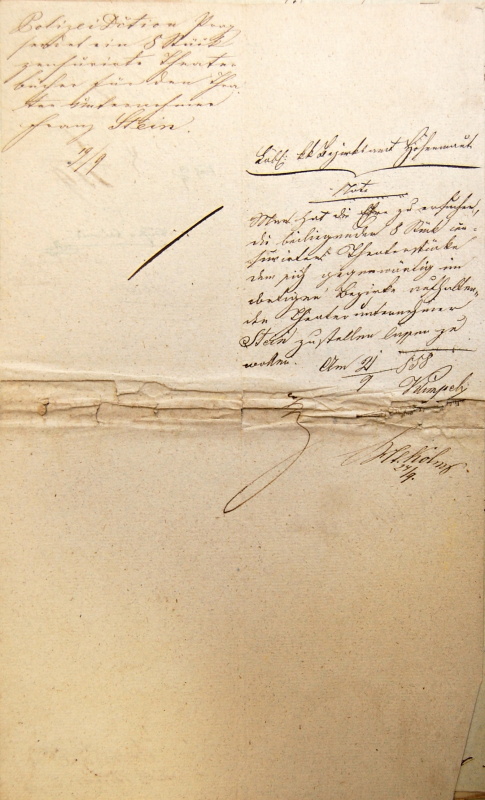 Polizei Dction Prag
sendet ein 8 Stück
zensurirte Theater
bücher für den Thea-
ter Unternehmer
Franz Stein.
19/9
Löbl. kk Bezirksamt Hohenmaut
Note
Man hat die Ehre zu ersuchen,
die beiliegenden 8 Stück cen-
surirten Theaterstücke
dem sich gegenwärtig im
dortigen Bezirke aufhalten-
den Theaterunternehmer
Stein zustellen lassen zu
wollen. Am 21/9 858